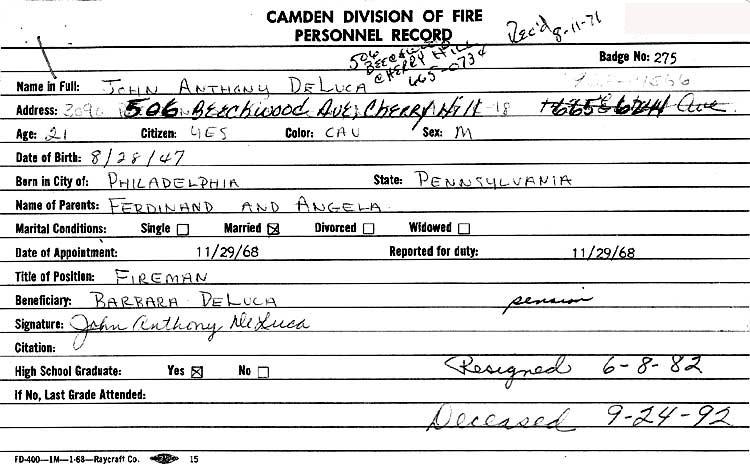 CAMDEN DIVISION OF FIRE
PERSONNEL RECORD
Rec'd 8-11-71
506
BEECHWOOD
CHERRY HILL
665-0734
Badge No: 275
Name in Full: JOHN ANTHONY DELUCA
Address: 3096 506 Beechwood Ave, Cherry Hill 18 Ave.
Age: 21 Citizen: YES Color: CAU Sex: M
Date of Birth: 8/28/47
Born in City of: PHILADELPHIA State: PENNSYLVANIA
Name of Parents: FERDINAND AND ANGELA
Marital Conditions: Single Married Divorced Widowed
Date of Appointment: 11/29/68 Reported for duty: 11/29/68
Title of Position: FIREMAN
Beneficiary: BARBARA DELUCA pension
Signature: John Anthony DeLuca
Citation:
High School Graduate: Yes No Resigned 6-8-82
If No, Last Grade Attended:
Deceased 9-24-92
FD-400—1M—1-68—Raycraft Co. 15